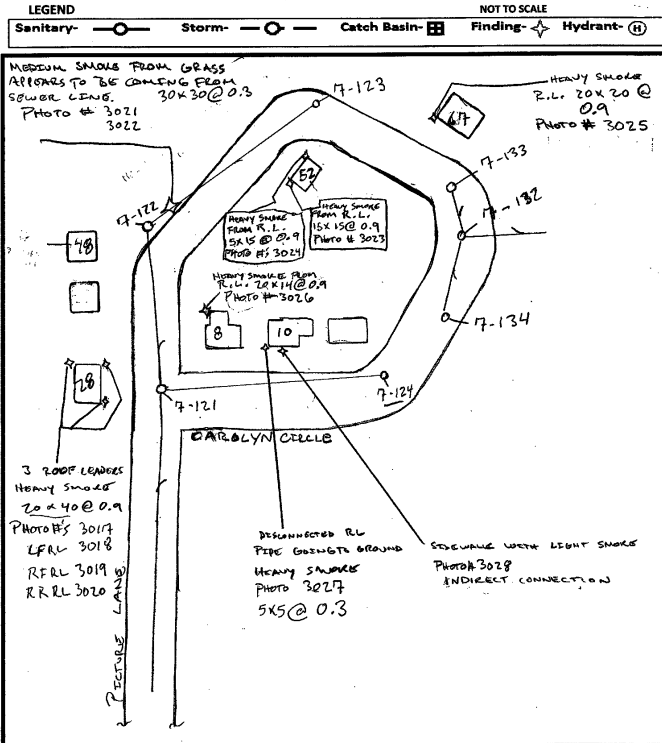 LEGEND
NOT TO SCALE
Sanitary- Storm- Catch Basin- Finding- Hydrant- H
MEDIUM SMOKE FROM GRASS
APPEARS TO BE COMING FROM
SEWER LINE. 30x30@0.3
PHOTO # 3021
3022
7-123
HEAVY SMOKE
R.L. 20x20 @
0.9
PHOTO # 3025
67
7-133
7-132
7-134
52
7-122
HEAVY SMOKE
FROM R.L.
5x15 @ 0.9
PHOTO #'s 3024
HEAVY SMOKE
FROM R.L.
15x15@ 0.9
PHOTO # 3023
48
HEAVY SMOKE FROM
R.L. 20x14@0.9
PHOTO # 3026
8
10
28
7-121
7-124
CAROLYN CIRCLE
3 ROOF LEADERS
HEAVY SMOKE
20 x 40 @ 0.9
PHOTO #'s 3017
LFRL 3018
RFRL 3019
RRRL 3020
PICTURE LANE
DISCONNECTED RL
PIPE GOING TO GROUND
HEAVY SMOKE
PHOTO 3027
5x5 @ 0.3
SIDEWALK WITH LIGHT SMOKE
PHOTO# 3028
INDIRECT CONNECTION